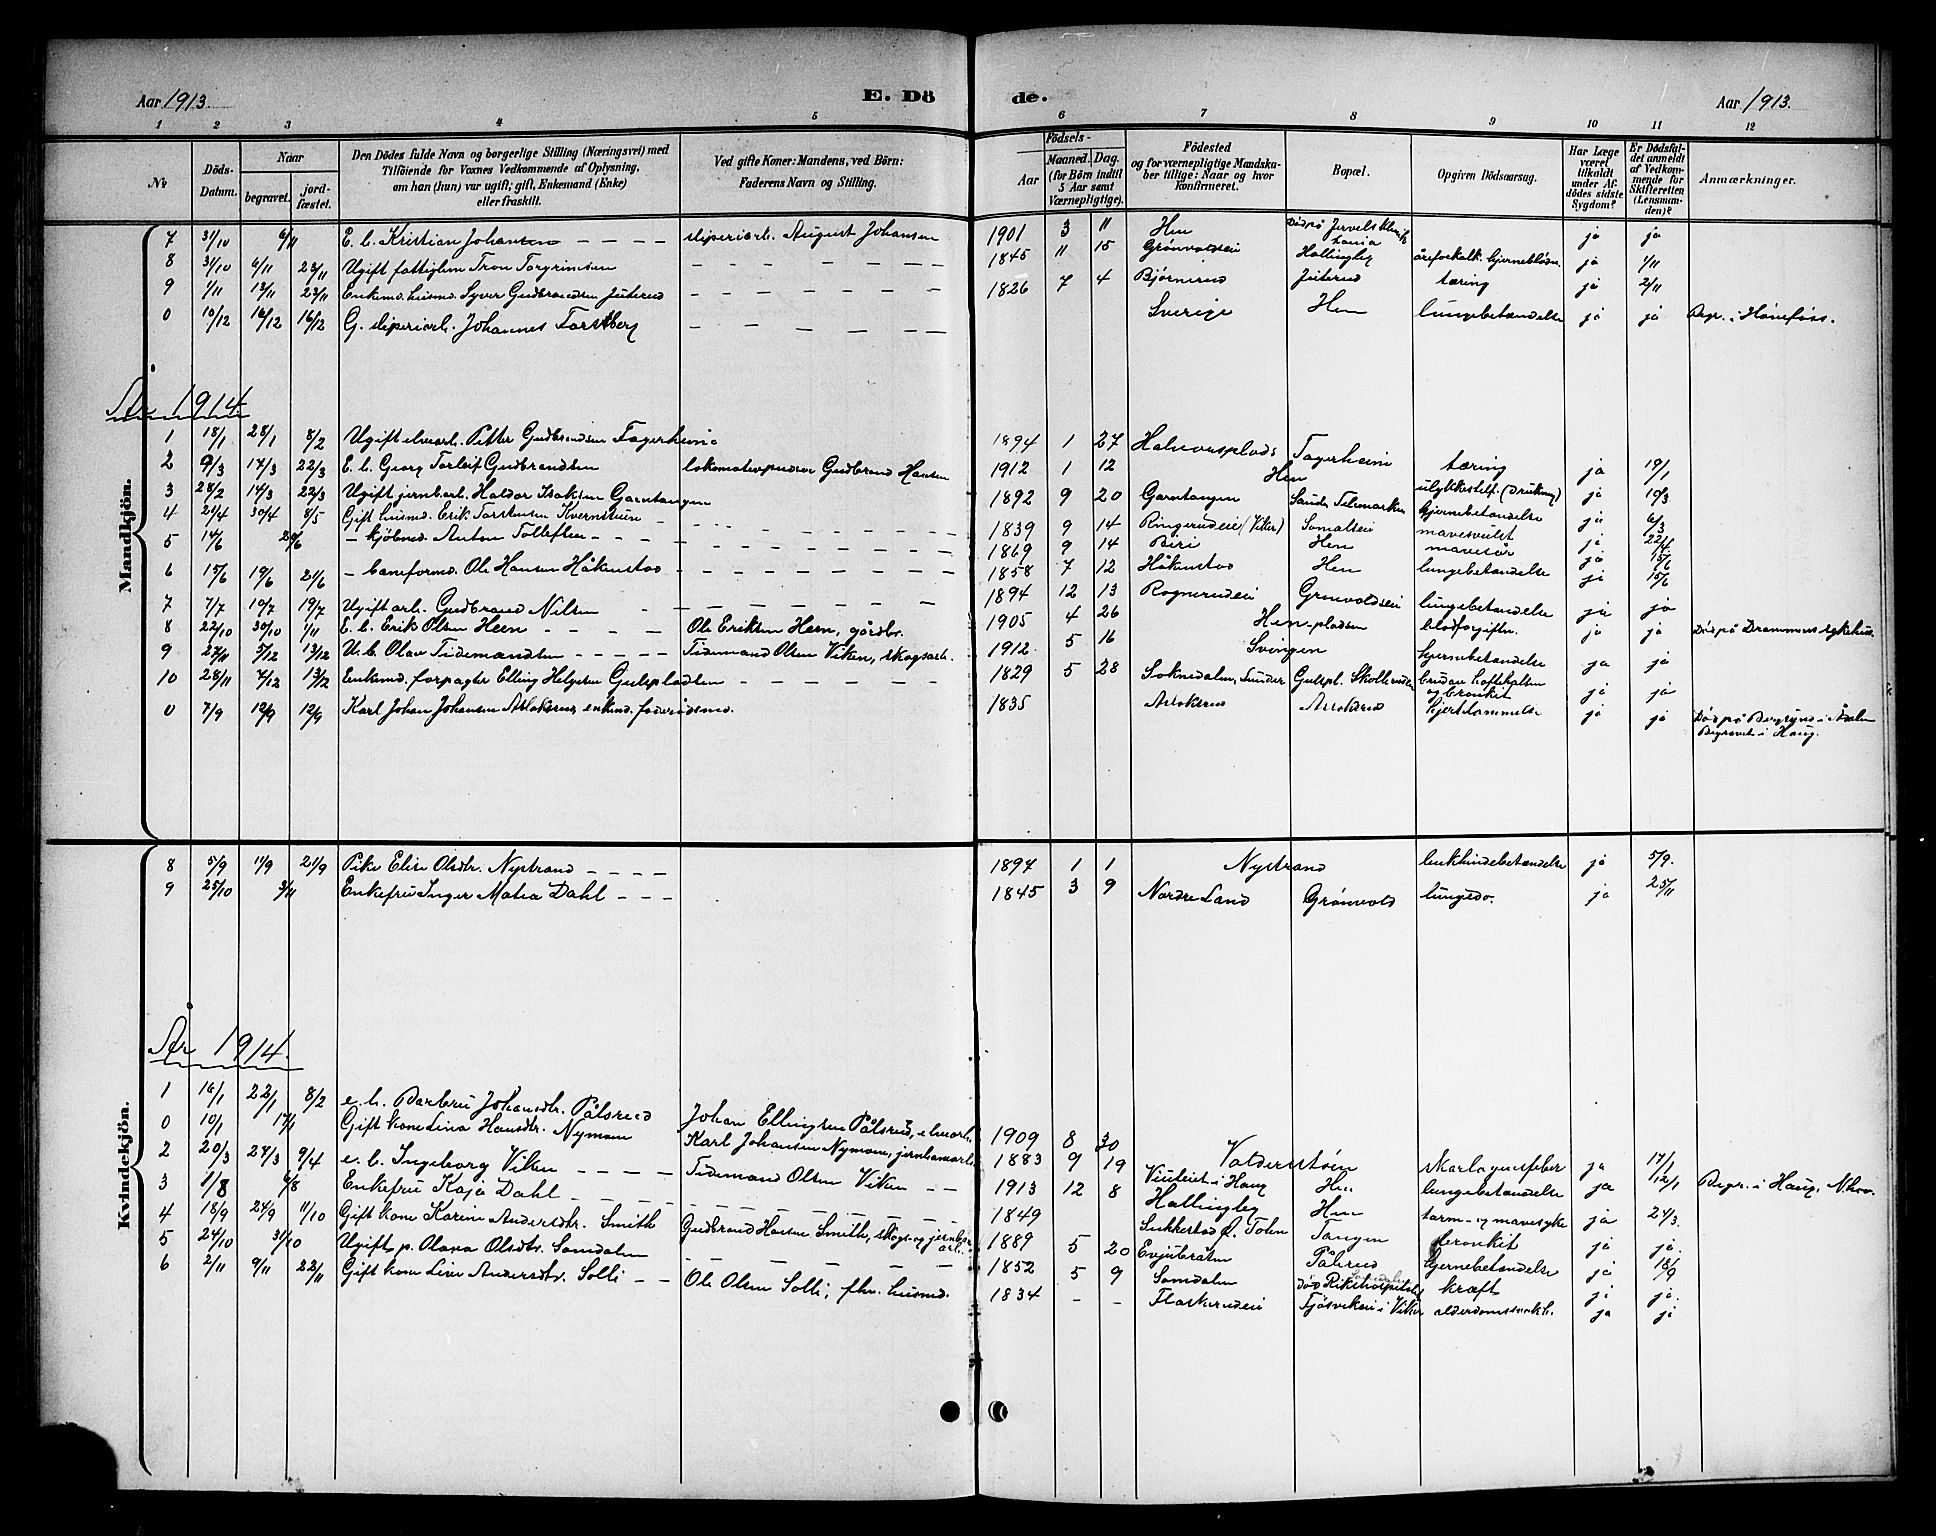 Aar 1913. E. Dö de. Aar 1913.
1 2 3 4 5 6 7 8 9 10 11 12
№ Döds-Datum. Naar begravet. jordfæstet. Den Dödes fulde Navn og borgerlige Stilling (Næringsvei) med Tilföiende for Voxnes Vedkommende af Oplysning, om han (hun) var ugift, gift, Enkemand (Enke) eller fraskilt. Ved gifte Koner: Mandens, ved Börn: Faderens Navn og Stilling. Födsels- Aar Maaned. Dag. (for Börn indtil 5 Aar samt Værnepligtige). Födested og for værnepligtige Mandskaber tillige: Naar og hvor konfirmeret. Bopæl. Opgiven Dödsaarsag. Har Læge været tilkaldt under Afdödes sidste Sygdom? Er Dödsfaldet anmeldt af Vedkommende for Skifteretten (Lensmanden)? Anmærkninger.
Mandkjön.
7 31/10 6/11 E. b. Kristian Johansen – – – – sliperiarb. August Johansen 1901 3 11 Hen ja ja
8 31/10 6/11 23/11 Ugift fattiglem Tron Torgrimsen – – – – – – – 1845 11 15 Grønvoldseie Hallingby åreforkalk. hjerneblødn. ja 1/11
9 1/11 13/11 23/11 Enkemd. husmd. Syver Gudbrandsen Juterud – – – – – – – 1826 7 4 Bjørnerud Juterud tæring ja 2/11
0 10/12 16/12 16/12 G. sliperiarb. Johannes Forsberg – – – – – – – Sverige Hen lungebetændelse ja ja Begr. i Hønefoss.
År 1914.
1 18/1 28/1 8/2 Ugift elvearb. Petter Gudbrandsen Fagerheim 1894 1 27 Halvorsplads Fagerheim tæring ja 19/1
2 9/3 14/3 22/3 E. b. Georg Torleif Gudbrandsen lokomotivpudser Gudbrand Hansen 1912 1 12 Hen ulykkestilf. (Drukning) ja 10/3
3 28/2 14/3 22/3 Ugift jernbarb. Haldor Isaksen Garntangen 1892 9 20 Garntangen Sauda Telemarken hjernebetændelse ja 6/3
4 21/4 30/4 8/5 Gift husmd. Erik Torstensen Kvernsteien – – – – – – – 1839 9 14 Ringerudeie (Viker) Somaleie mavesvulst ja 22/4
5 14/6 20/6 – kjøbmd. Anton Tollefsen – – – – – – – – – – 1869 9 14 Biri Hen mavesår ja 15/6
6 15/6 19/6 21/6 – baneformd. Ole Hansen Håkenstad – – – – – – – – 1858 7 12 Håkenstad Hen lungebetændelse ja 15/6
7 7/7 10/7 19/7 Ugift arb. Gudbrand Nilsen – – – – – – – – 1894 12 13 Rognerudeie Grønvoldseie lungebetændelse ja ja
8 22/10 30/10 1/11 E. b. Erik Olsen Heen – – – – Ole Eriksen Heen, gårdbr. 1905 4 26 Hen-pladsen blodforgiftn. ja ja Død på Drammens sykehus.
9 27/11 5/12 13/12 U. b. Olav Tidemandsen – – – – – Tidemand Olsen Viken, skogsarb. 1912 5 16 Svingen hjernebetændelse ja ja
10 28/11 7/12 13/12 Enkemd. forpagter Elling Helgesen Gulspladsen – – – – – – – – 1829 5 28 Soknedalen, Sundet Gulspl. Skollerud og bronkit ja ja
0 7/9 12/9 12/9 Karl Johan Johansen Aslaksrud enkemd. føderådsmd. 1835 Aslaksrud Aslaksrud hjertelammelse ja ja Død på Bergsund i Ådalen Begravet i Haug.
Kvindekjön.
8 5/9 11/9 21/9 Pike Elise Olsdtr. Nystrand – – – – 1897 1 1 Nystrand bukhindebetændelse ja 5/9.
9 25/10 3/11 Enkefru Inger Matea Dahl – – – 1845 3 9 Nordre Land Grønvold lungeso. ja 25/11
År 1914.
1 16/1 22/1 8/2 e. b. Barbru Johansdtr. Pålsrud Johan Ellingsen Pålsrud, elvearb. 1909 8 30 Valderstøen skarlagensfeber ja 17/1
0 10/1 17/1 Gift kone Lina Hansdtr. Nymoen Karl Johansen Nymoen, jernbanearb. 1883 9 19 Vieneie i Haug Hen lungebetændelse ja 12/1 Begr. i Haug, N.hov.
2 20/3 24/3 9/4 e. b. Ingeborg Viken – – – – – Tidemand Olsen Viken – – 1913 12 8 Hallingby Hen tarm- og mavesyke ja 24/3.
3 1/8 6/8 Enkefru Kaja Dahl – – – – – – – – – – 1849 Sukkestad Ø. Toten Tangen bronkit ja ja.
4 18/9 24/9 11/10 Gift kone Karine Andersdtr. Smith Gudbrand Hansen Smith, skogs- og jernbarb. 1889 5 20 Evjubråten Pålsrud hjernebetændelse ja 18/9
5 24/10 31/10 Ugift p. Olava Olsdtr. Somdalen – – – – – – – 1852 5 9 Somdalen død Rikshospitalet kræft ja ja.
6 2/11 9/11 22/11 Gift kone Live Andersdtr. Solli – – Ole Olsen Solli, fhv. husmd. 1834 – – Flaskerudeie Tjøsvikeie i Viker alderdomssvakh. ja ja